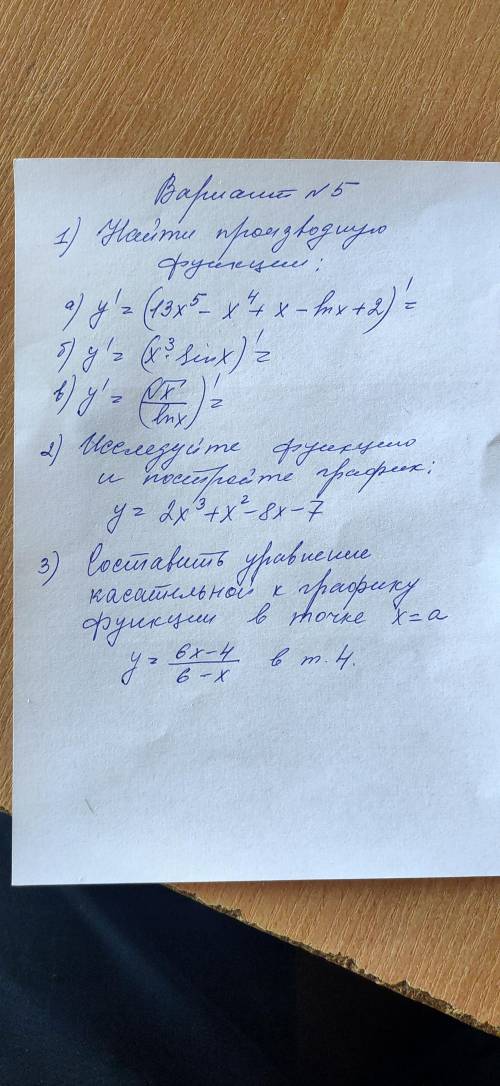 Вариант №5
1) Найти производную
функции:
а) y' = (13x⁵ - x⁴ + x - lnx + 2)' =
б) y' = (x³ · sinx)' =
в) y' = (√x / lnx)' =
2) Исследуйте функцию
и постройте график:
y = 2x³ + x² - 8x - 7
3) Составить уравнение
касательной к графику
функции в точке x = a
y = (6x - 4) / (6 - x) в т. 4.